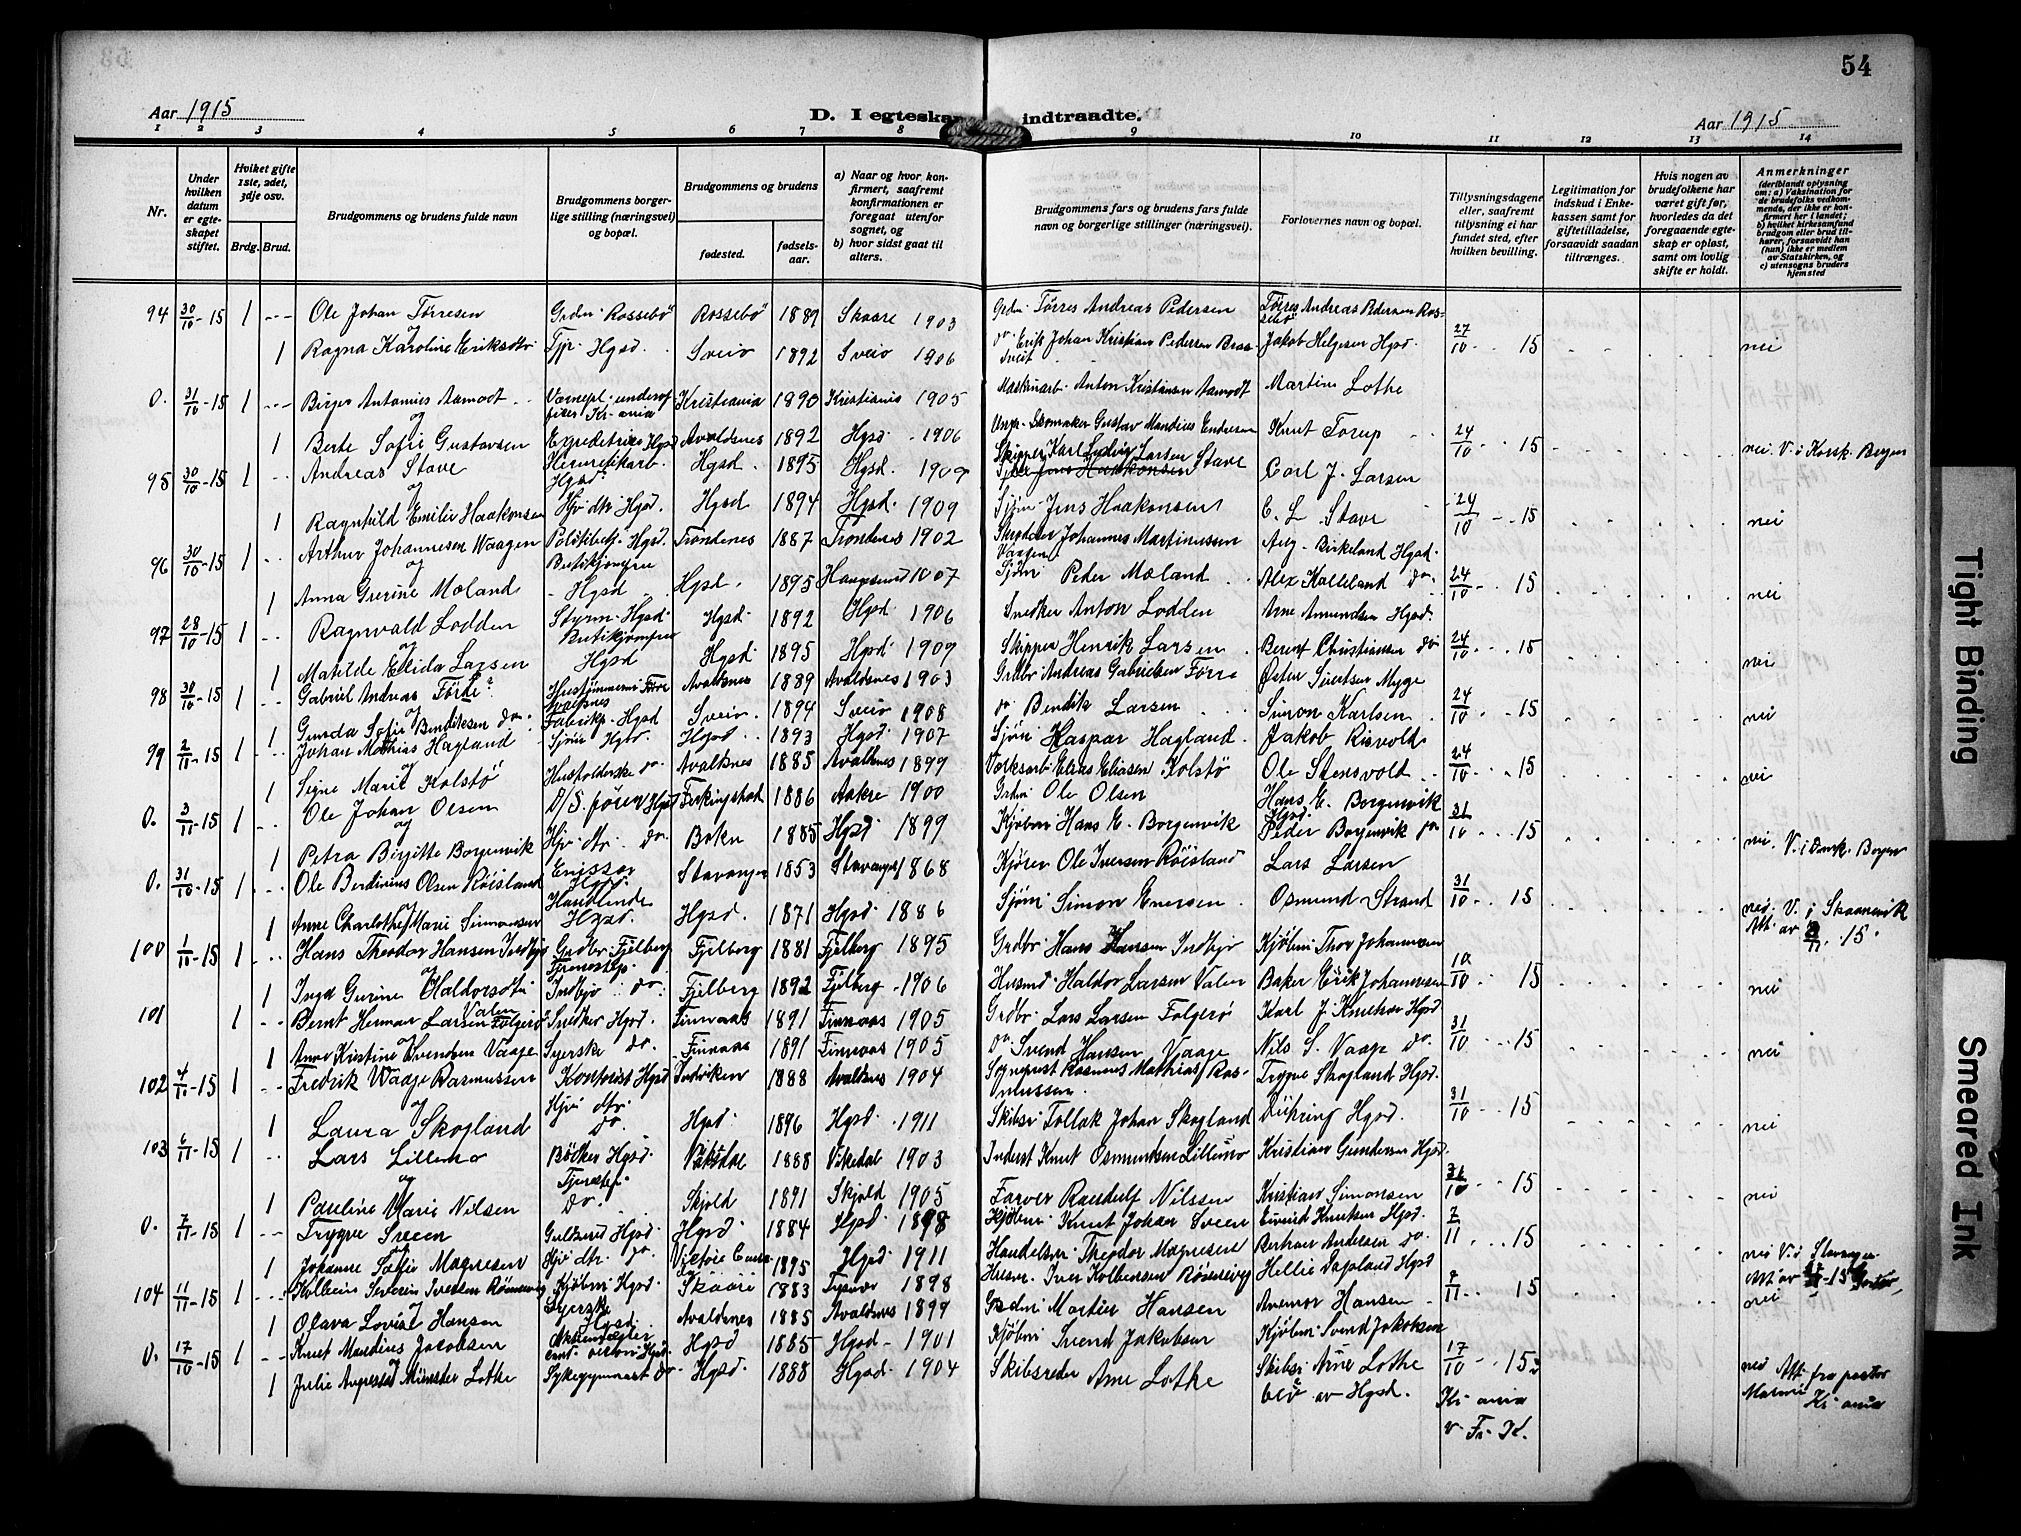 54
Aar 1915
D. I egteskap indtraadte.
Aar 1915
1 2 3 4 5 6 7 8 9 10 11 12 13 14
Nr.
Under hvilken datum er egteskapet stiftet.
Hvilket gifte 1ste, 2det, 3dje osv.
Brdg. Brud.
Brudgommens og brudens fulde navn
Brudgommens borgerlige stilling (næringsvei) og bopæl.
Brudgommens og brudens
fødested.
fødselsaar.
a) Naar og hvor konfirmert, saafremt konfirmationen er foregaat utenfor sognet, og
b) hvor sidst gaat til alters.
Brudgommens fars og brudens fars fulde navn og borgerlige stillinger (næringsvei).
Forlovernes navn og bopæl.
Tillysningsdagene eller, saafremt tillysning ei har fundet sted, efter hvilken bevilling.
Legitimation for indskud i Enkekassen samt for giftetilladelse, forsaavidt saadan tiltrænges.
Hvis nogen av brudefolkene har været gift før, hvorledes da det foregaaende egteskap er opløst, samt om lovlig skifte er holdt.
Anmerkninger
(deriblandt oplysning om: a) Vaksination for de brudefolks vedkommende, der ikke er konfirmert her i landet; b) hvilket kirkesamfund brudgom eller brud tilhører, forsaavidt han (hun) ikke er medlem av Statskirken, og c) utensogns bruders hjemsted
94 30/10-15 1 Ole Johan Tørresen Grdm. Rossebø Rossebø 1889 Skaare 1903 Grdm. Tørres Andreas Pedersen Tørres Andreas Pedersen Rossebø
og
1 Ragna Karoline Eriksdtr Tjp. Hgsd. Sveio 1892 Sveio 1906 do Erik Johan Kristian Pedersen Jakob Helgesen Hgsd. 27/10 15 nei
0. 31/10-15 1 Birger Antonius Aamodt Kristiania 1890 Kristiania 1905 Maskinarb. Anton Kristiansen Aamodt Martin Lothe
og
1 Berte Sofie Gustavsen Hgsd Avaldsnes 1892 Hgsd. 1906 Skomaker Gustav Mandius Endresen Knut Torup 24/10 15 nei. V. i Korsk. Bergen
95 30/10-15 1 Andreas Stave Hermetikarb. Hgsd. Hgsd. 1895 Hgsd. 1909 Skipper Karl Ludvig Larsen Stave Carl J. Larsen
og
1 Ragnhild Emilie Haakonsen Hjv. dtr. Hgsd. Hgsd 1894 Hgsd. 1909 Sjøm. Jens Haakonsen C. L. Stave 24/10 15 nei
96 30/10-15 1 Arthur Johannesen Waagen Politibetj. Hgsd. Trondenes 1887 Trondenes 1902 Johannes Martinussen Vaagen Aug. Birkeland Hgsd.
og
1 Anna Gurine Moland Butikjomfru Hgsd Hgsd. 1895 Haugesund 1907 Sjøm. Peder Moland Alex Kalleland do. 24/10 15 nei
97 28/10-15 1 Ragnvald Lodden Styrm. Hgsd. Hgsd. 1892 Hgsd. 1906 Snedker Anton Lodden Arne Amundsen Hgsd.
og
1 Matilde Elida Larsen Butikjomfru Hgsd Hgsd. 1895 Hgsd. 1909 Skipper Henrik Larsen Berent Christiansen do 24/10 15 nei
98 30/10-15 1 Gabriel Andreas Førre Hustømmerm. Førre Avaldsnes Avaldsnes 1889 Avaldsnes 1903 Grdbr. Andreas Gabrielsen Førre Østen Sivertsen Myge
og
1 Gunda Sofie Bendiksen do. Fabrikp. Hgsd Sveio. 1894 Sveio 1908 do Bendik Larsen Simon Karlsen 24/10 15 nei
99 2/11-15 1 Johan Mathias Hagland Sjøm. Hgsd. Hgsd. 1893 Hgsd. 1907 Sjøm. Kaspar Hagland Jakob Risvold
og
1 Signe Marie Kolstø Husholderske do. Avaldsnes 1885 Avaldsnes 1899 Elias Eliasen Kolstø Ole Stensvold 24/10 15 nei
0. 3/11-15 1 Ole Johan Olsen D/S. fører Hgsd Ferkingstad 1886 Aakre 1900 Grdm. Ole Olsen Hans E. Borgenvik Hgsd.
og
1 Petra Birgitte Borgenvik Hjv. dtr. do. Bokn 1885 Hgsd. 1899 Kjøbm. Hans E. Borgenvik Peder Borgenvik do 31/10 15 nei. V. i Domk. Bergen
0. 31/10-15 1 Ole Berdinius Olsen Røisland Hgsd. Stavanger 1853 Stavanger 1868 Kjører Ole Iversen Røisland Lars Larsen
1 Anne Charlothe Marie Simonsen Handlende Hgsd. Hgsd. 1871 Hgsd. 1886 Sjøm. Simon Enersen Osmund Strand 31/10 15 nei. V. i Skaanevik Att. av 15.
100 1/11-15 1 Hans Theodor Hansen Indbjo Grdbr. Fjelberg Fjelberg 1881 Fjelberg 1895 Grdbr. Hans Hansen Indbjo Kjøbm. Thor Johannesen
og
1 Inga Gurine Haldorsdtr Valen Tjenestep. Indbjo do. Fjelberg 1892 Fjelberg 1906 Husmd. Haldor Larsen Valen Baker Erik Johannesen 10/10 15 nei
101 1 Bernt Herman Larsen Folgerø Snedker Hgsd. Finnaas 1891 Finnaas 1905 Grdbr. Lars Larsen Folgerø Karl J. Hgsd
og
1 Anna Kristine Svendsen Vaage Syerske do. Finnaas 1891 Finnaas 1905 do. Svend Hansen Vaage Nils S. Vaage do. 31/10 15 nei
102 4/11-15 1 Fredrik Waage Rasmussen Kontorist Hgsd 1888 Avaldsnes 1904 Sogneprest Rasmus Mathias Rasmussen Trygve Skogland Hgsd.
og
1 Laura Skogland Hjv. dtr. do. Hgsd. 1896 Hgsd. 1911 Skibsr. Tollak Johan Skogland Dühring Hgsd. 31/10 15 nei
103 6/11-15 1 Lars Lillemo Bødker Hgsd. Vikedal 1888 Vikedal 1903 Inderst Knut Osmundsen Lillemo Kristian Gundersen Hgsd.
og
1 Pauline Marie Nilsen Tjenestep. do. Skjold 1891 Skjold 1905 Farver Randulf Nilssen Kristian Simonsen 31/10 15 nei
0. 7/11-15 1 Trygve Sveen Guldsmed Hgsd. Hgsd. 1884 Hgsd. 1898 Kjøbm. Knut Johan Sveen Eivind Knutsen Hgsd.
og
1 Johanne Sofie Magnesen Hjv. dtr. do. 1895 Hgsd. 1911 Handelsr. Theodor Magnesen Bertran Andersen do. 7/11 15 nei V. i Stavanger
104 11/11-15 1 Kolbein Severin Iversen Kjøbm. Hgsd. Skaare 1883 1898 Iver Kolbensen Hellie Dagsland Hgsd
og
1 Olava Lovise Hansen Syerske Hgsd. Avaldsnes 1885 Avaldsnes 1899 Grdm. Martin Hansen Anemor Hansen 9/11 15 nei
0. 17/10-15 1 Knut Mandius Jacobsen Hgsd. Hgsd 1885 Hgsd. 1901 Kjøbm. Svend Jakobsen Kjøbm. Svend Jakobsen
og
1 Julie Augusta Münster Lothe Sykegymnast do. Hgsd. 1888 Hgsd. 1904 Skibsreder Arne Lothe Skibsr. Arne Lothe 17/10 15 nei Att. fra pastor
av Hgsd. Kr. ania Kr. ania
v. Fr. K.
Tight Binding
Smeared Ink